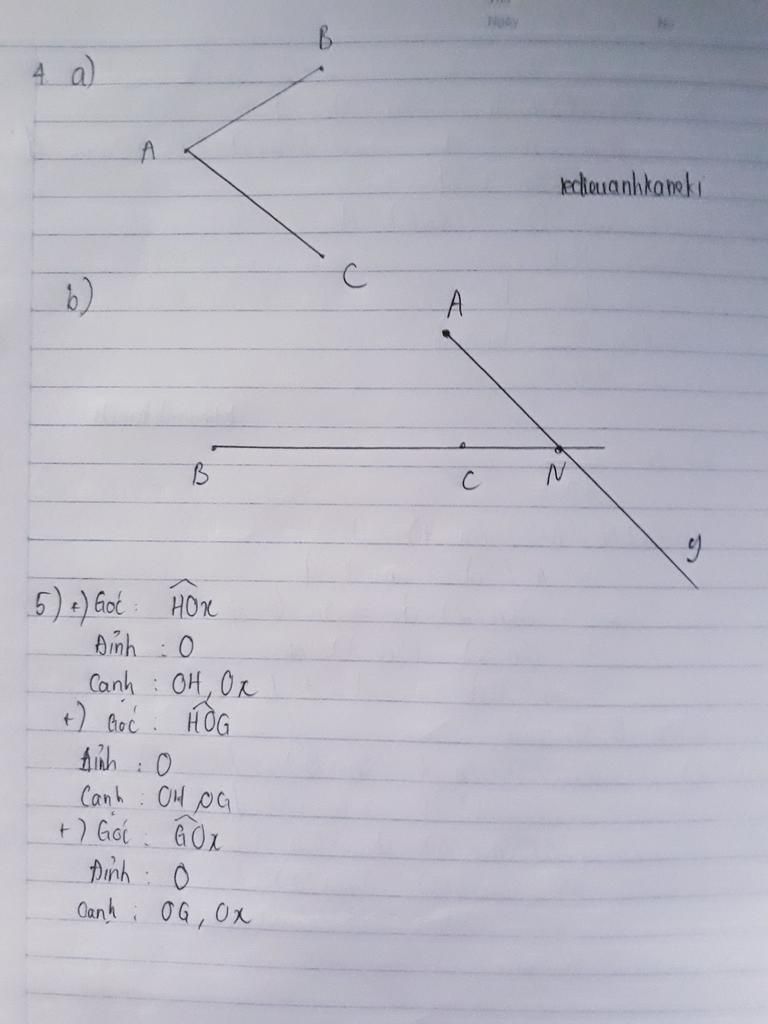 Ngày
No
4 a)
B
A
redieuanhkaneki
C
b)
A
B
C
N
y
5) +) Góc : HOx
Đỉnh : O
Cạnh : OH, Ox
+) Góc : HOG
Đỉnh : O
Cạnh : OH, OG
+) Góc : GOx
Đỉnh : O
Cạnh : OG, Ox